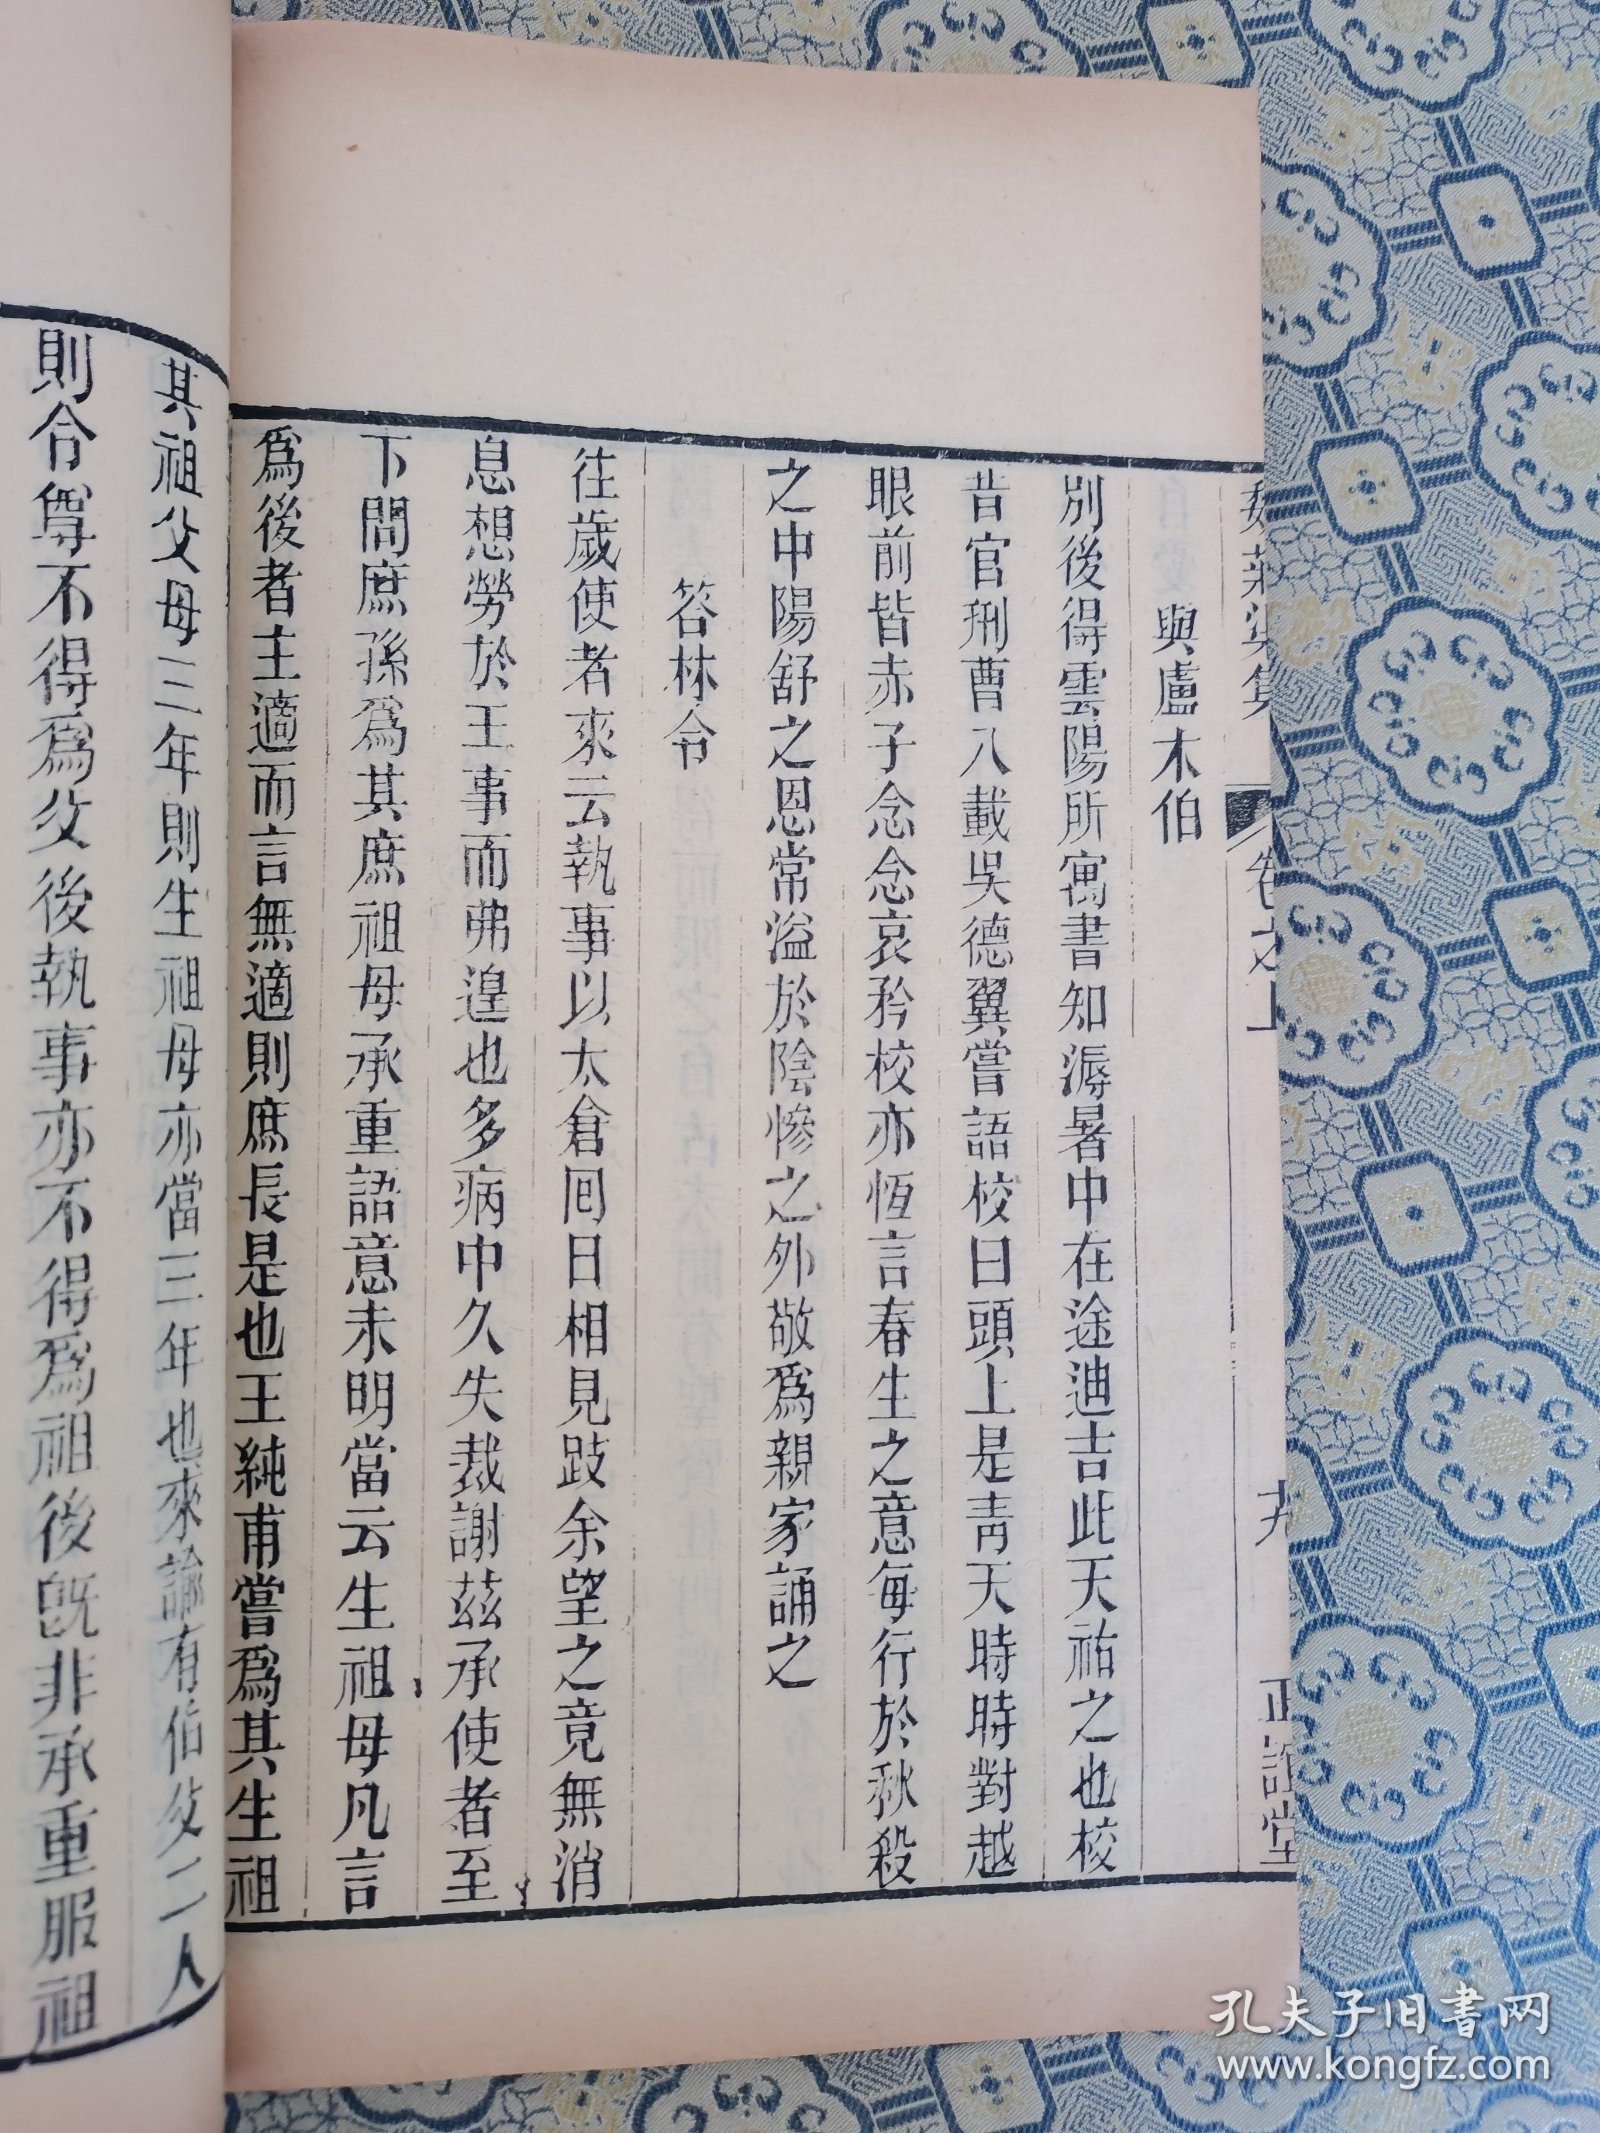 卷之上
正誼堂
與盧木伯
別後得雲陽所寓書知溽暑中在途迪吉此天祐之也校
昔官刑曹八載吳德翼嘗語校曰頭上是青天時時對越
眼前皆赤子念念哀矜校亦恆言春生之意每行於秋殺
之中陽舒之恩常溢於陰慘之外敬爲親家誦之
答林令
往歲使者來云執事以太倉囘日相見跂余望之竟無消
息想勞於王事而弗遑也多病中久失裁謝茲承使者至
下問庶孫爲其庶祖母承重語意未明當云生祖母凡言
爲後者主適而言無適則庶長是也王純甫嘗爲其生祖
其祖父母三年則生祖母亦當三年也來諭有伯父二人
則令尊不得爲父後執事亦不得爲祖後旣非承重服祖
孔夫子旧书网
www.kongfz.com